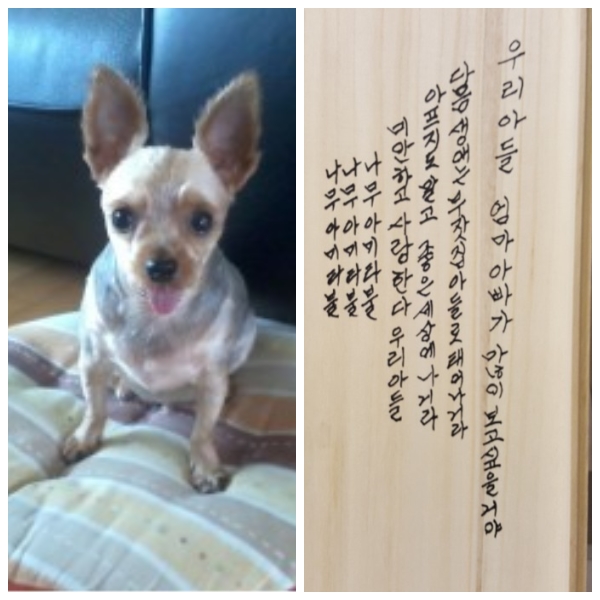 우리아들 엄마아빠가 많이 보고싶을거야
다음생에는 부자집 아들로 태어나거라
아프지도 말고 좋은세상에 나거라
미안하고 사랑한다 우리아들
나무아미타불
나무아미타불
나무아미타불